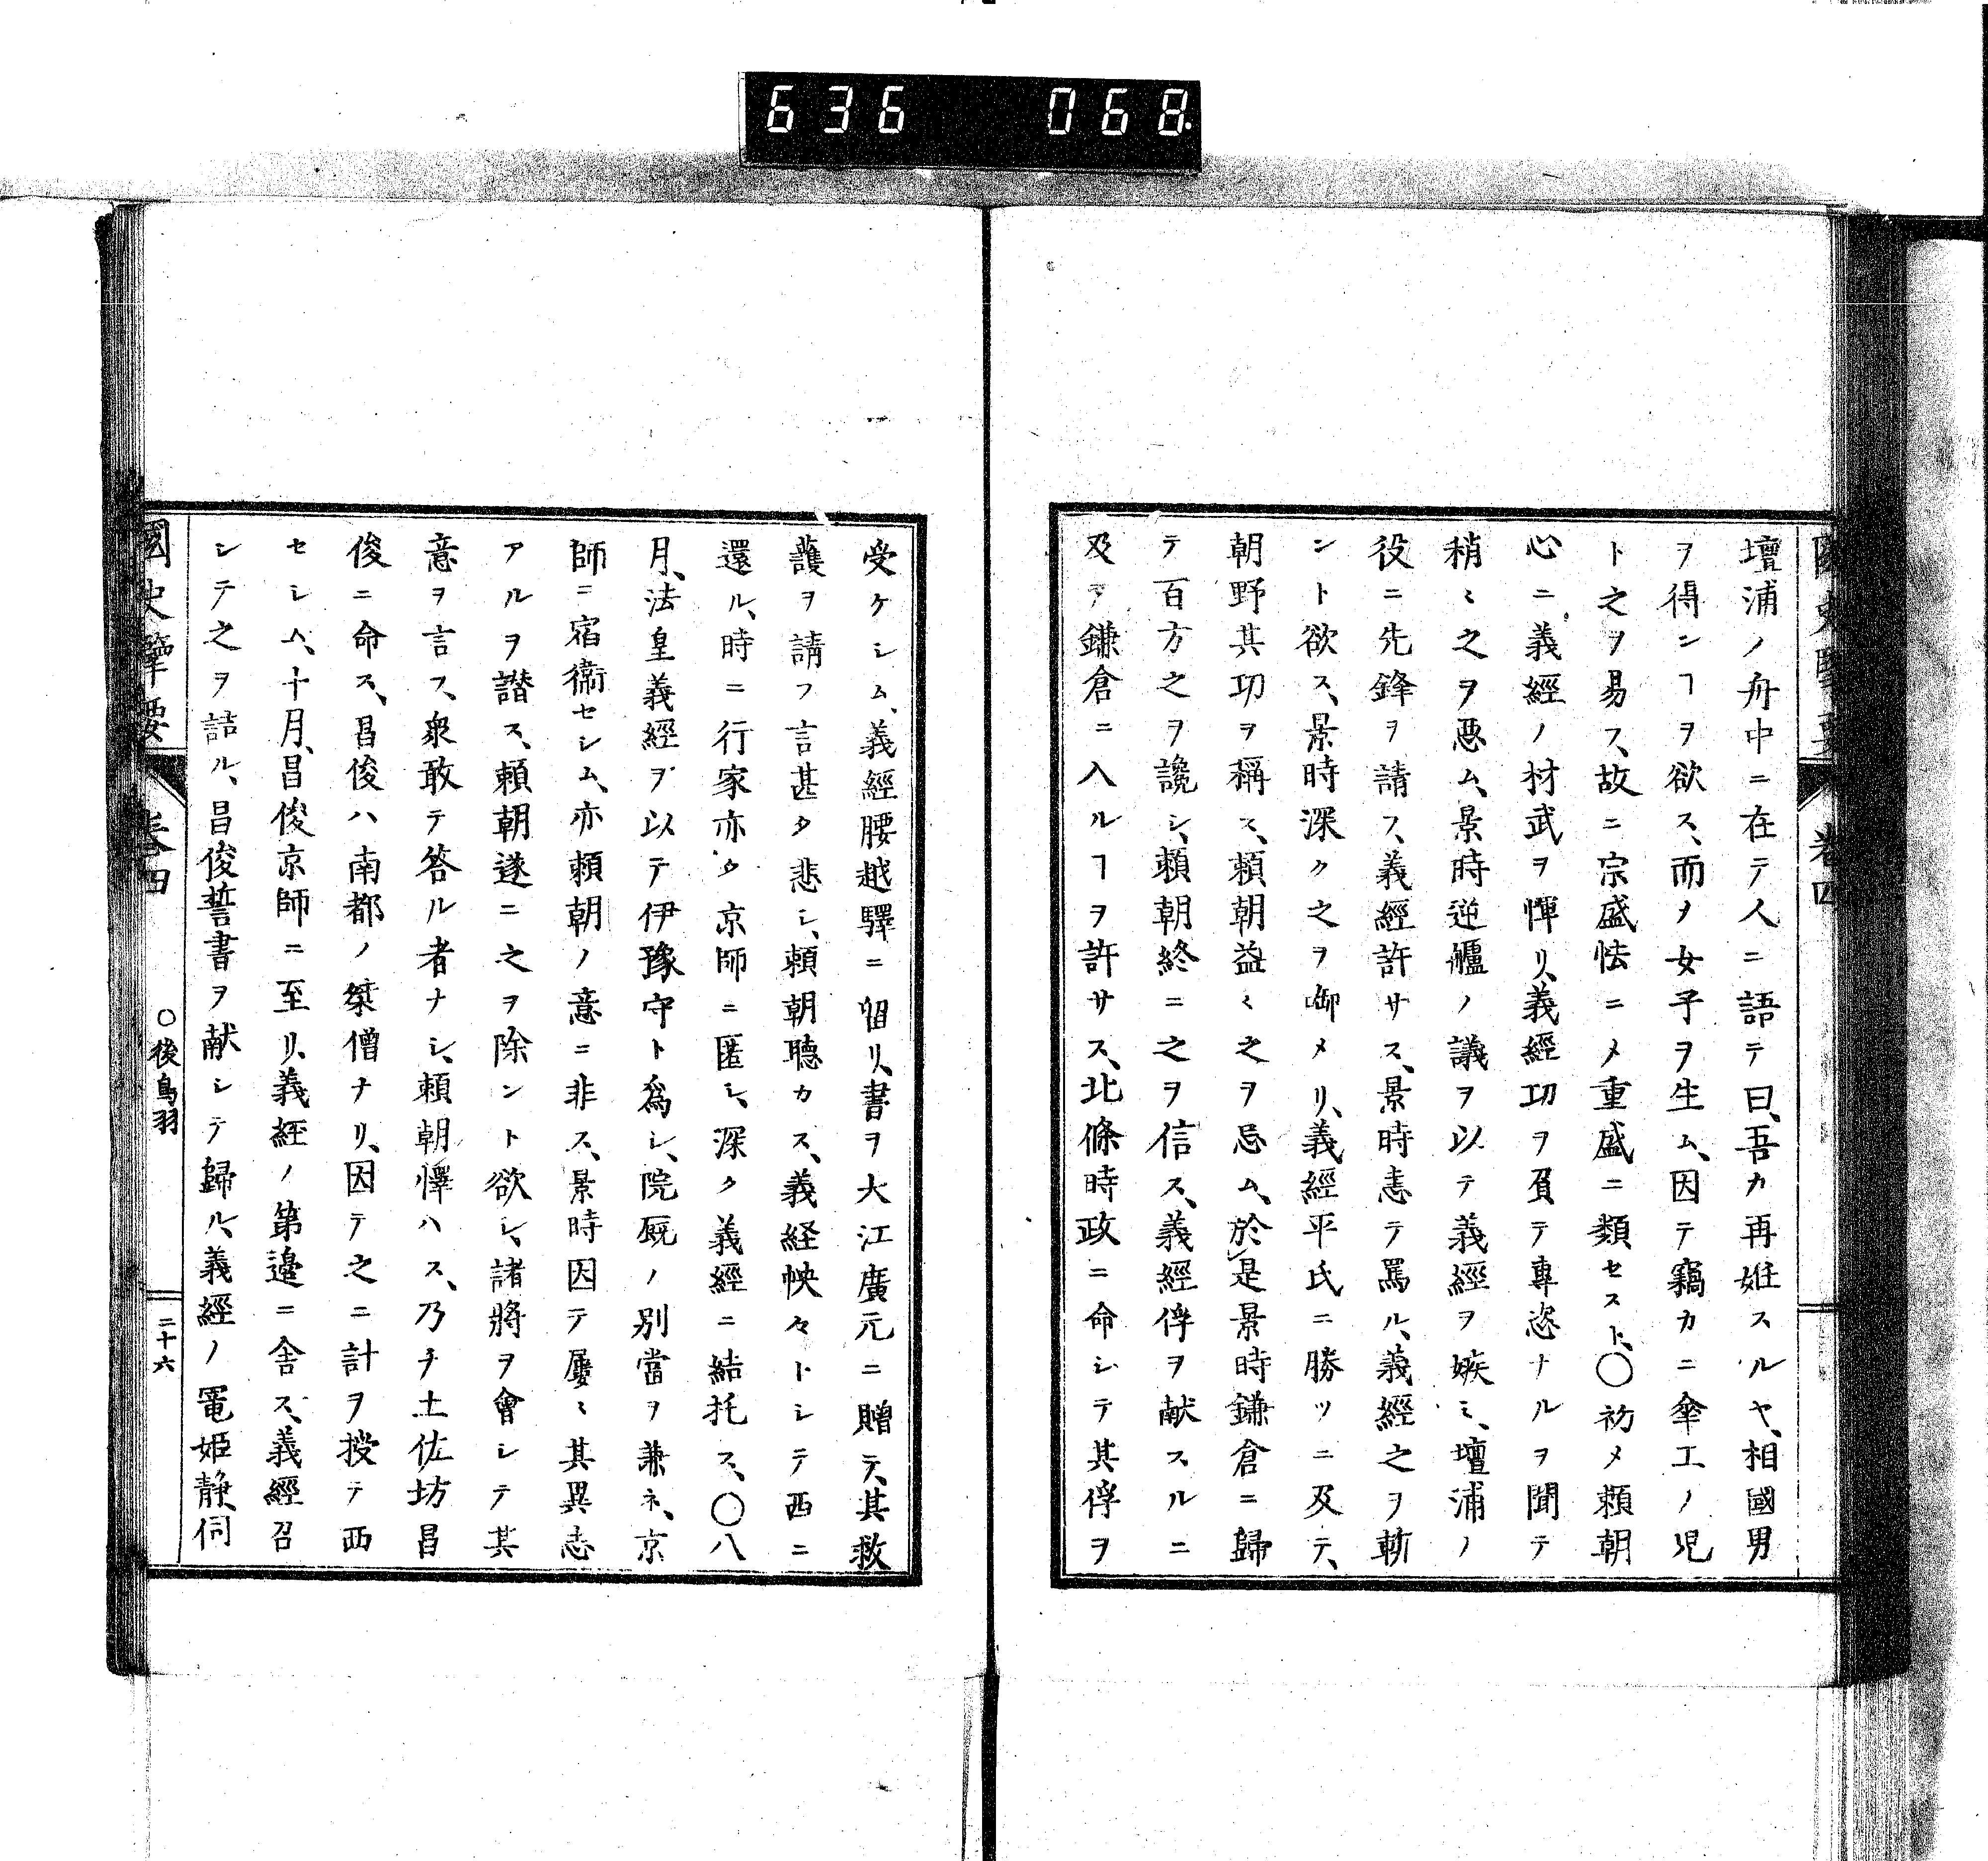 636 068
國史擥要 卷四
壇浦ノ舟中ニ在テ人ニ語テ曰、吾カ再姙スルヤ、相國男
ヲ得ンヿヲ欲ス、而〆女子ヲ生ム、因テ竊カニ傘工ノ児
ト之ヲ易フ、故ニ宗盛怯ニ〆重盛ニ類セスト、〇初メ頼朝
心ニ義經ノ材武ヲ憚リ、義經功ヲ負テ專恣ナルヲ聞テ
稍〻之ヲ惡ム、景時逆艫ノ議ヲ以テ義經ヲ嫉ミ、壇浦ノ
役ニ先鋒ヲ請フ、義經許サス、景時恚テ罵ル、義經之ヲ斬
ント欲ス、景時深ク之ヲ啣メリ、義經平氏ニ勝ツニ及テ、
朝野其功ヲ稱ス、頼朝益〻之ヲ忌ム、於是景時鎌倉ニ歸
テ百方之ヲ讒シ、頼朝終ニ之ヲ信ス、義經俘ヲ献スルニ
及テ鎌倉ニ入ルヿヲ許サス、北條時政ニ命シテ其俘ヲ
受ケシム、義經腰越驛ニ留リ、書ヲ大江廣元ニ贈テ、其救
護ヲ請フ言甚タ悲シ、頼朝聴カス、義経怏々トシテ西ニ
還ル、時ニ行家亦タ京師ニ匿シ、深ク義經ニ結托ス、〇八
月、法皇義經ヲ以テ伊豫守ト爲シ、院厩ノ別當ヲ兼ネ、京
師ニ宿衞セシム、亦頼朝ノ意ニ非ス、景時因テ屢〻其異志
アルヲ譖ス、頼朝遂ニ之ヲ除ント欲シ、諸將ヲ會シテ其
意ヲ言フ、衆敢テ答ル者ナシ、頼朝懌ハス、乃チ土佐坊昌
俊ニ命ス、昌俊ハ南都ノ桀僧ナリ、因テ之ニ計ヲ授テ西
セシム、十月、昌俊京師ニ至リ、義經ノ第邉ニ舎ス、義經召
シテ之ヲ詰ル、昌俊誓書ヲ献シテ歸ル、義經ノ寵姫静、伺
國史擥要 卷四 〇後鳥羽 二十六